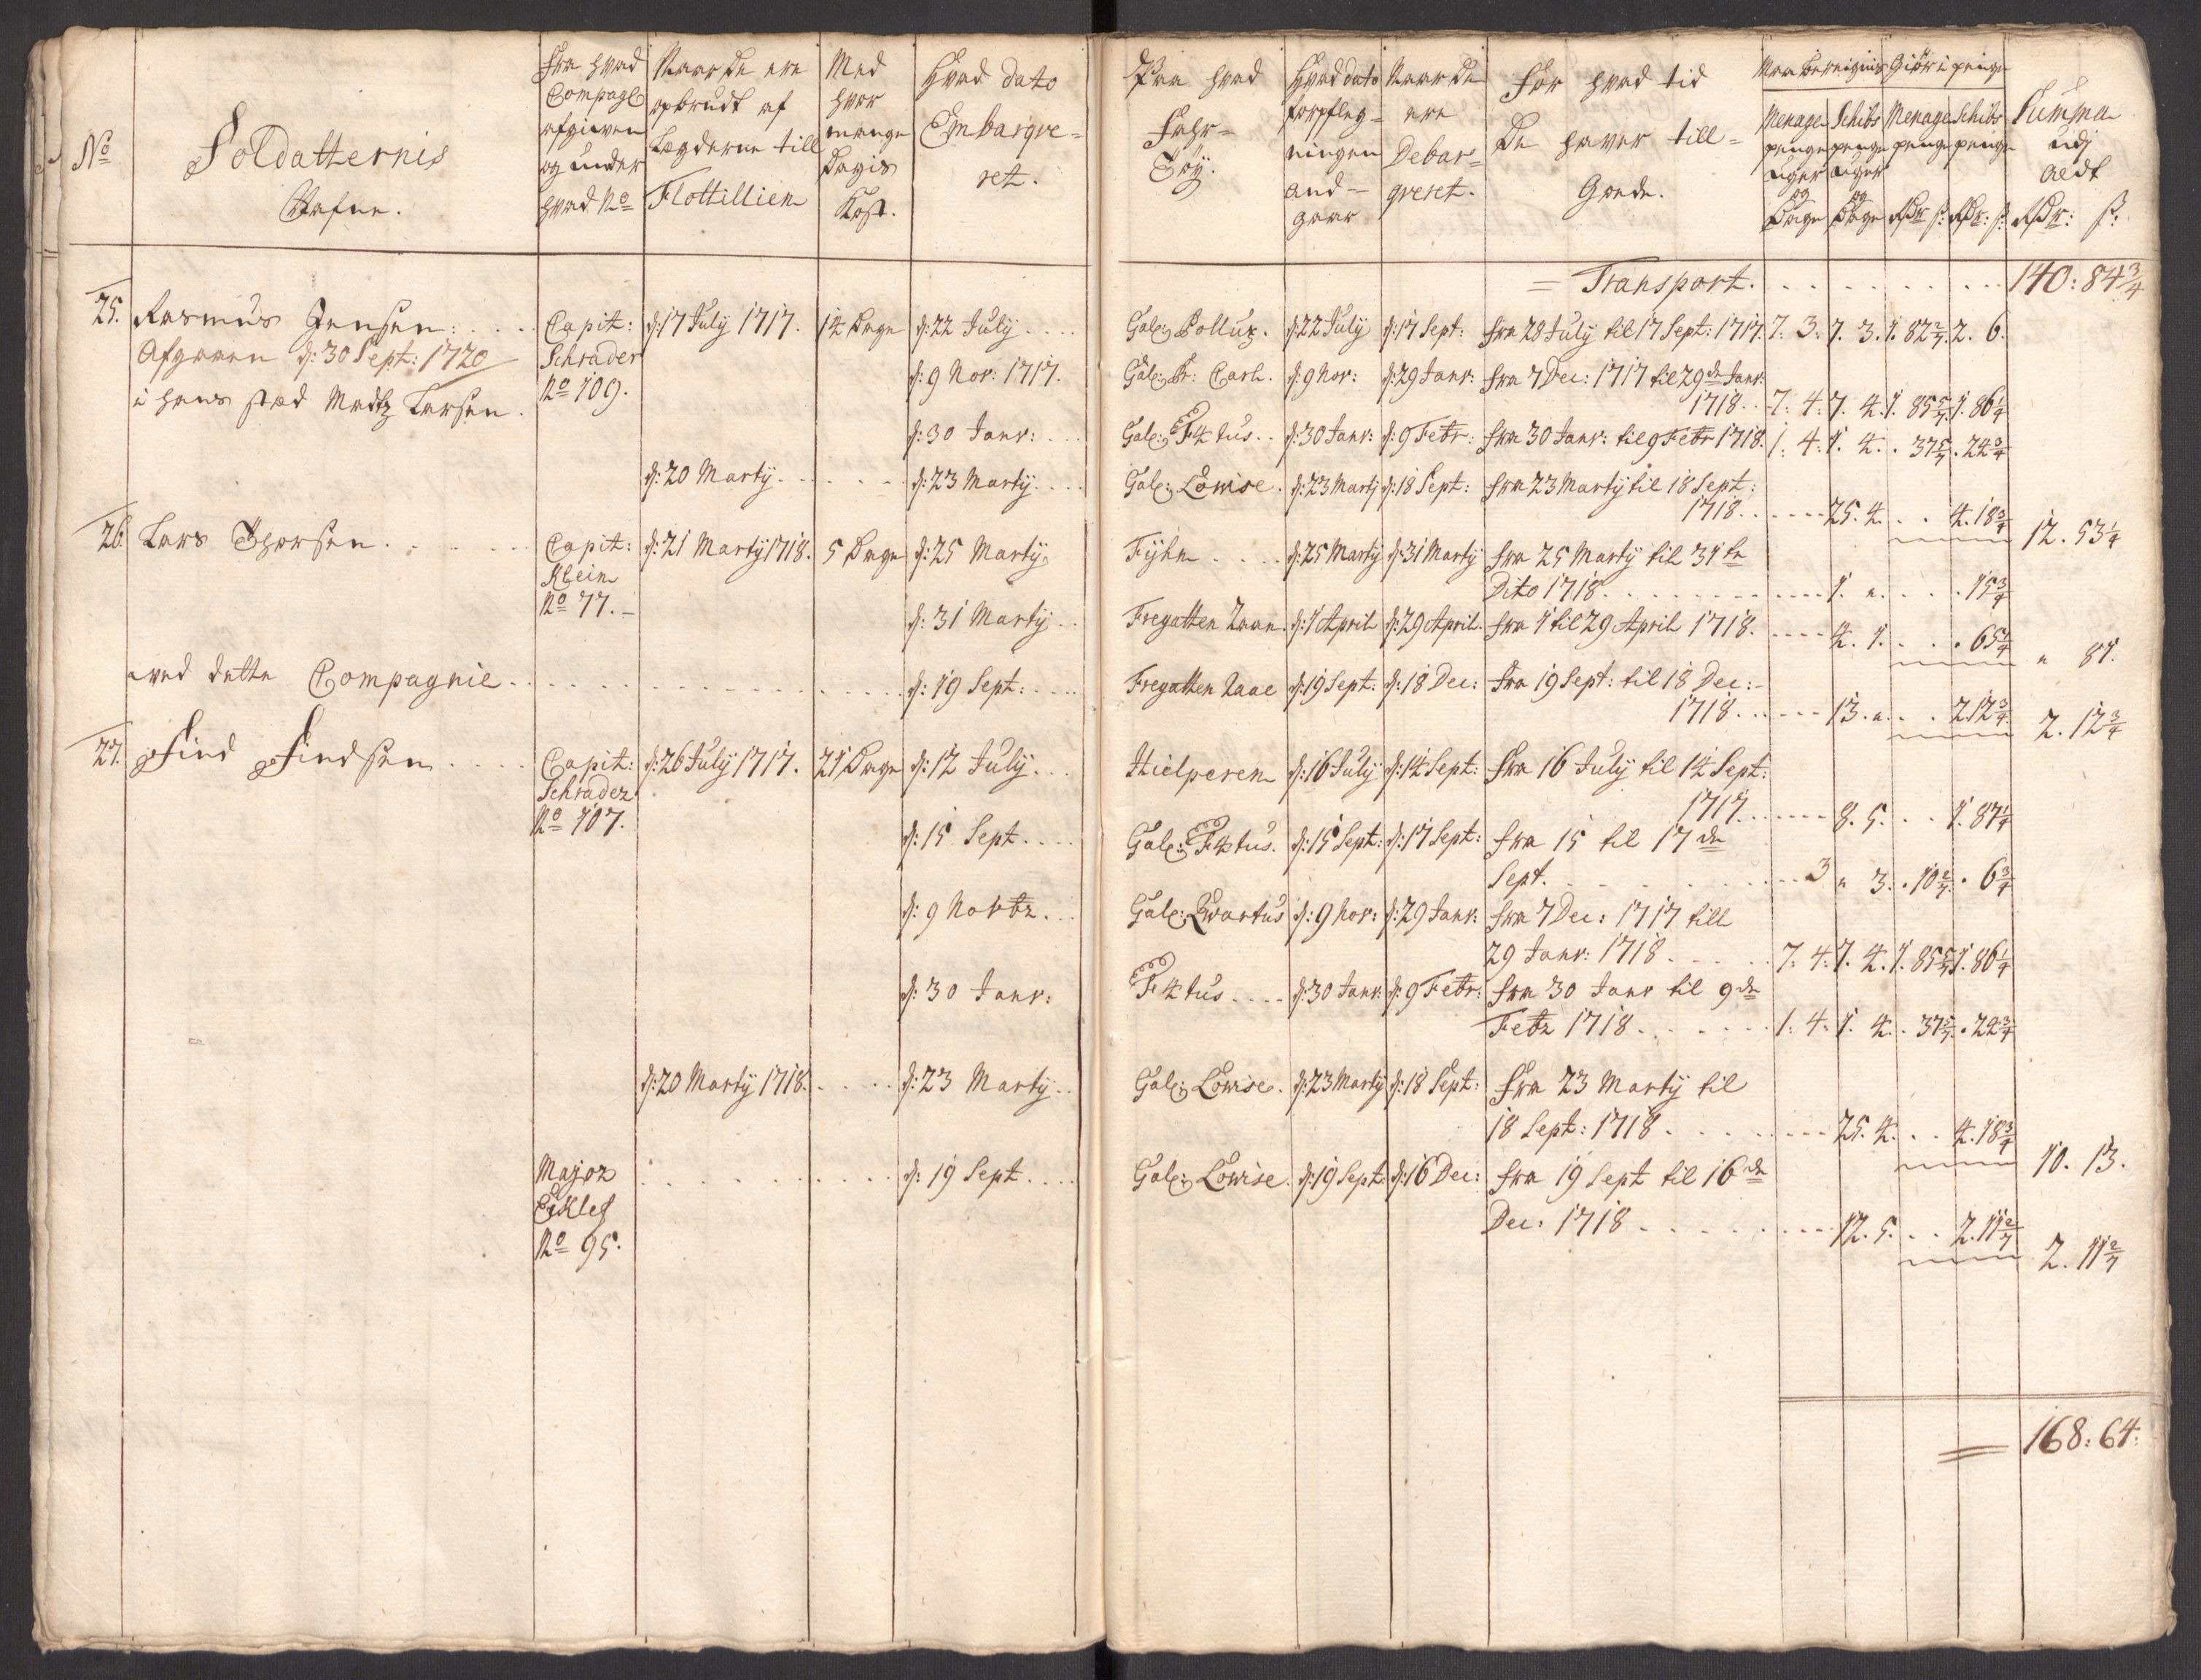 No
Soldatternis
Nafne.
Fra hvad
Compagl
afgiven
og under
hvad No
Naar de ere
opbrudt af
Lægderne till
Flottillien
Med
hvor
mange
Dagis
Kost.
Hvad dato
Embarqve-
ret.
Paa hvad
Fahr-
Töy.
Hvad dato
forpfleg-
ningen
and-
gaar
Naar de
ere
Debar-
qveret.
For hvad tid
De haver till-
Gode.
Giör i penge
Menage penge uger og Dage
Schibs penge uger og Dage
Menage penge Rdr: s:
Schibs penge Rdr: s:
Summa
udj
aldt
Rdr: s:
= Transport. 140: 84 3/4
25. Rasmus Jensen: Capit: d: 17 July 1717. 14 Dage d: 22 July Gale: Pollux. d: 22 July d: 17 Sept: fra 28 July til 17 Sept: 1717. 7. 3. 7. 3. 1. 82 2/7. 2. 6.
Afgaaen d: 30 Sept: 1720 Schrader
i hans stæd Madtz Larsen. No 109. d: 9 Nov: 1717. Gale: Pr: Carl. d: 9 Nov: d: 29 Janr: fra 7 Dec: 1717 til 29de Janr:
1718. 7. 4. 7. 4. 1. 85 5/7. 1. 86 1/4
d: 30 Janr: Gale: F4tus. d: 30 Janr: d: 9 Febr: fra 30 Janr: til 9 Febr 1718. 1. 4. 1. 4. . 37 5/7 . 24 3/4
d: 20 Marty. d: 23 Marty. Gale: Lowise. d: 23 Marty d: 18 Sept: fra 23 Marty til 18 Sept:
1718. 25. 4. 4. 18 3/4 12. 53 1/4
26. Lars Thorsen. Capit: d: 21 Marty 1718. 5 Dage d: 25 Marty Fyhn d: 25 Marty d: 31 Marty fra 25 Marty til 31te
Klein Dito 1718. 1. " . 15 3/4
No 77. d: 31 Marty Fregatten Raae. d: 1 April d: 29 April. fra 1 til 29 April 1718. 4. 1. . 65 1/4 " 81.
ved dette Compagnie. d: 19 Sept: Fregatten Raae d: 19 Sept: d: 18 Dec: fra 19 Sept: til 18 Dec:
1718. 13. " . 2. 12 3/4. 2. 12 3/4
27. Find Findsen Capit: d: 26 July 1717. 21 Dage d: 12 July. Hielperen d: 16 July d: 14 Sept: fra 16 July til 14 Sept:
Schrader 1717. 8. 5. . 1. 87 1/4
No 107. d: 15 Sept. Gale: F4tus. d: 15 Sept: d: 17 Sept: fra 15 til 17de
Sept. 3 " 3. . 10 2/7. . 6 3/4
d: 9 Novbr. Gale: Qvartus d: 9 Nov: d: 29 Janr: fra 7 Dec: 1717 till
29 Janr: 1718. 7. 4. 7. 4. 1. 85 5/7. 1. 86 1/4
d: 30 Janr: F4tus d: 30 Janr: d: 9 Febr: fra 30 Janr til 9de
Febr 1718. 1. 4. 1. 4. . 37 5/7. . 24 3/4
d: 20 Marty 1718. d: 23 Marty Gale: Lowise. d: 23 Marty d: 18 Sept: fra 23 Marty til
18 Sept: 1718. 25. 4. . 4. 18 3/4 10. 13.
Major d: 19 Sept. Gale: Lowise. d: 19 Sept. d: 16 Dec: fra 19 Sept til 16de
Dec: 1718. 12. 5. . 2. 11 2/7 2. 11 2/7
No 95.
168: 64: